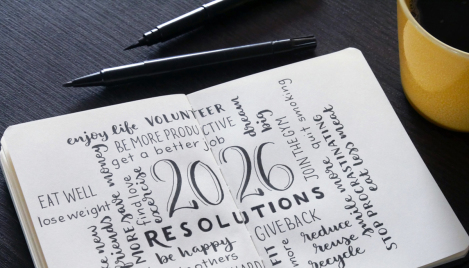 enjoy life VOLUNTEER
BE MORE PRODUCTIVE
get a better job
dream
big
quit smoking
JOIN THE GYM
EAT WELL
lose weight
save money
find love
exercise
2026
RESOLUTIONS
be happy
others
GIVE BACK
smile more
STOP PROCRASTINATING
eat less meat
new
friends
MORE
FIT
more
reduce
reuse
recycle